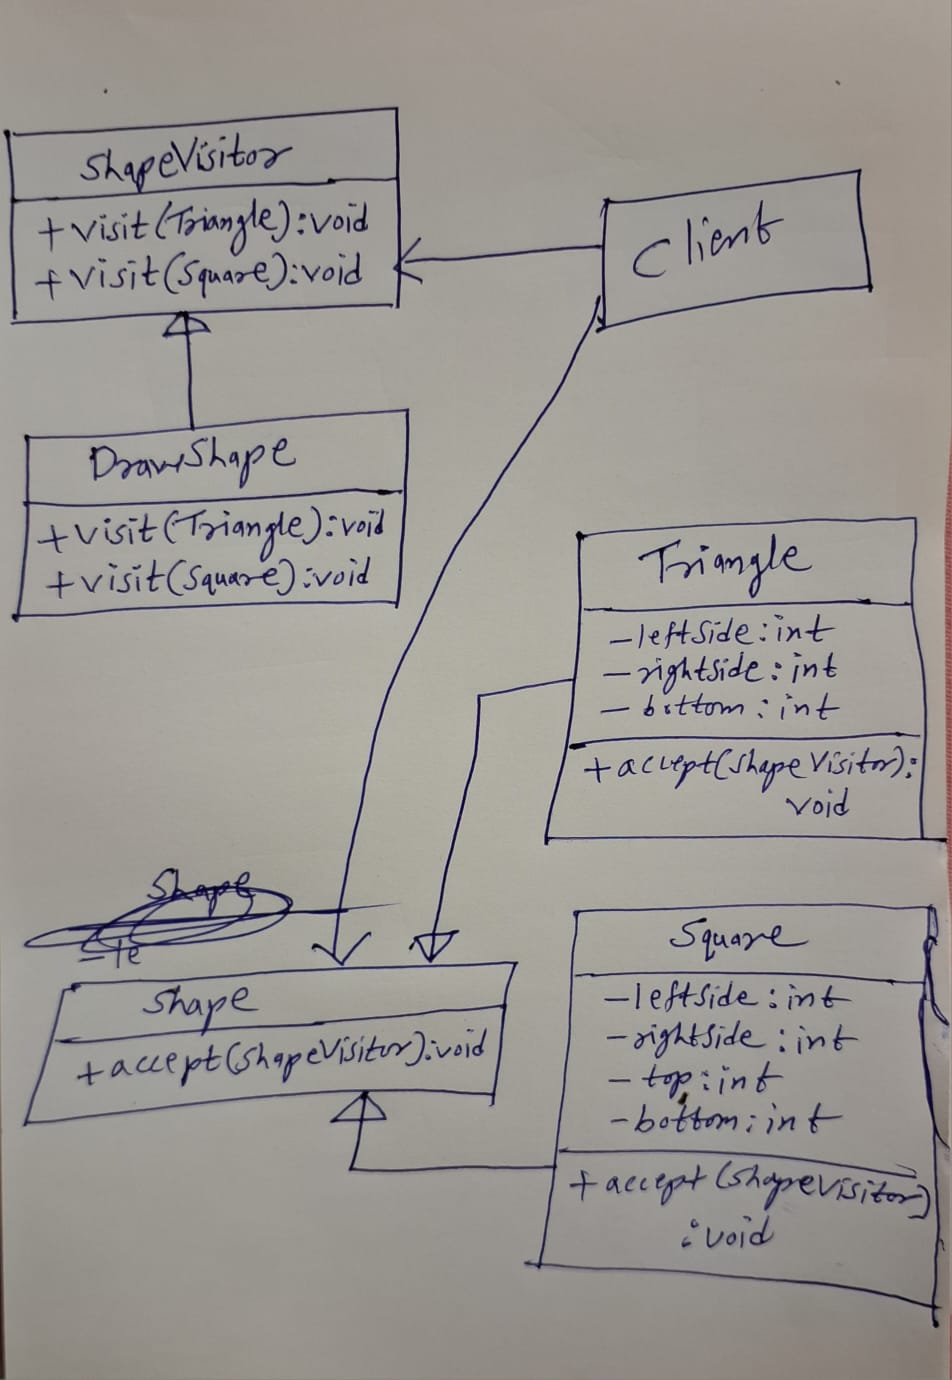 ShapeVisitor
+visit(Triangle):void
+visit(Square):void
Client
DrawShape
+visit(Triangle):void
+visit(Square):void
Triangle
-leftSide:int
-rightside:int
-bottom:int
+accept(ShapeVisitor):
void
Shape
-Te
Shape
+accept(ShapeVisitor):void
Square
-leftside:int
-rightside:int
-top:int
-bottom:int
+accept(ShapeVisitor)
:void